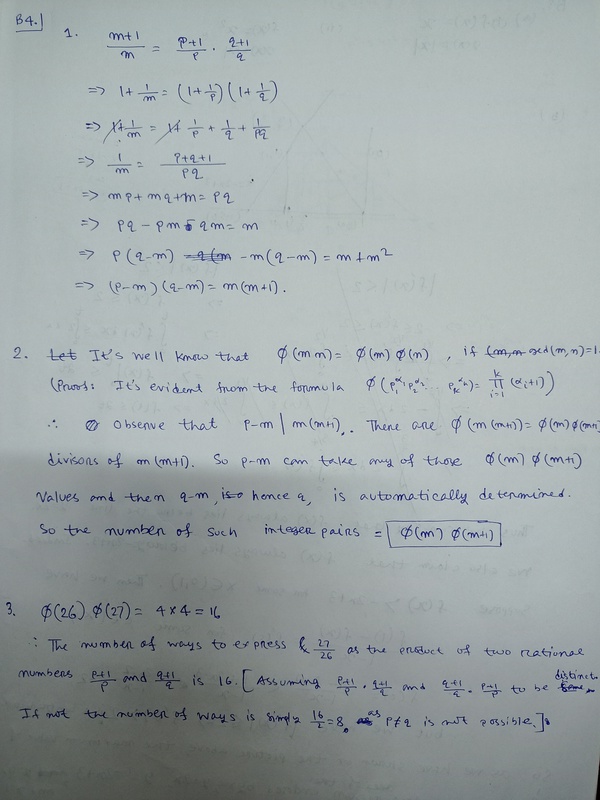 B4.
1. (m+1)/m = (p+1)/p · (q+1)/q
=> 1 + 1/m = (1 + 1/p)(1 + 1/q)
=> 1 + 1/m = 1 + 1/p + 1/q + 1/pq
=> 1/m = (p+q+1)/pq
=> mp + mq + m = pq
=> pq - pm - qm = m
=> p(q-m) - m(q-m) = m + m²
=> (p-m)(q-m) = m(m+1).
2. It's well know that φ(mn) = φ(m) φ(n), if gcd(m,n)=1.
(Proof: It's evident from the formula φ(p₁^α₁ p₂^α₂ ... pₖ^αₖ) = ∏_{i=1}^{k} (αᵢ+1))
∴ Observe that p-m | m(m+1). There are φ(m(m+1)) = φ(m) φ(m+1)
divisors of m(m+1). So p-m can take any of those φ(m) φ(m+1)
values and then q-m, hence q, is automatically determined.
So the number of such integer pairs = φ(m) φ(m+1)
3. φ(26) φ(27) = 4 × 4 = 16
∴ The number of ways to express 27/26 as the product of two rational
numbers (p+1)/p and (q+1)/q is 16. [Assuming (p+1)/p · (q+1)/q and (q+1)/q · (p+1)/p to be distinct.
If not the number of ways is simply 16/2 = 8. as p≠q is not possible.]